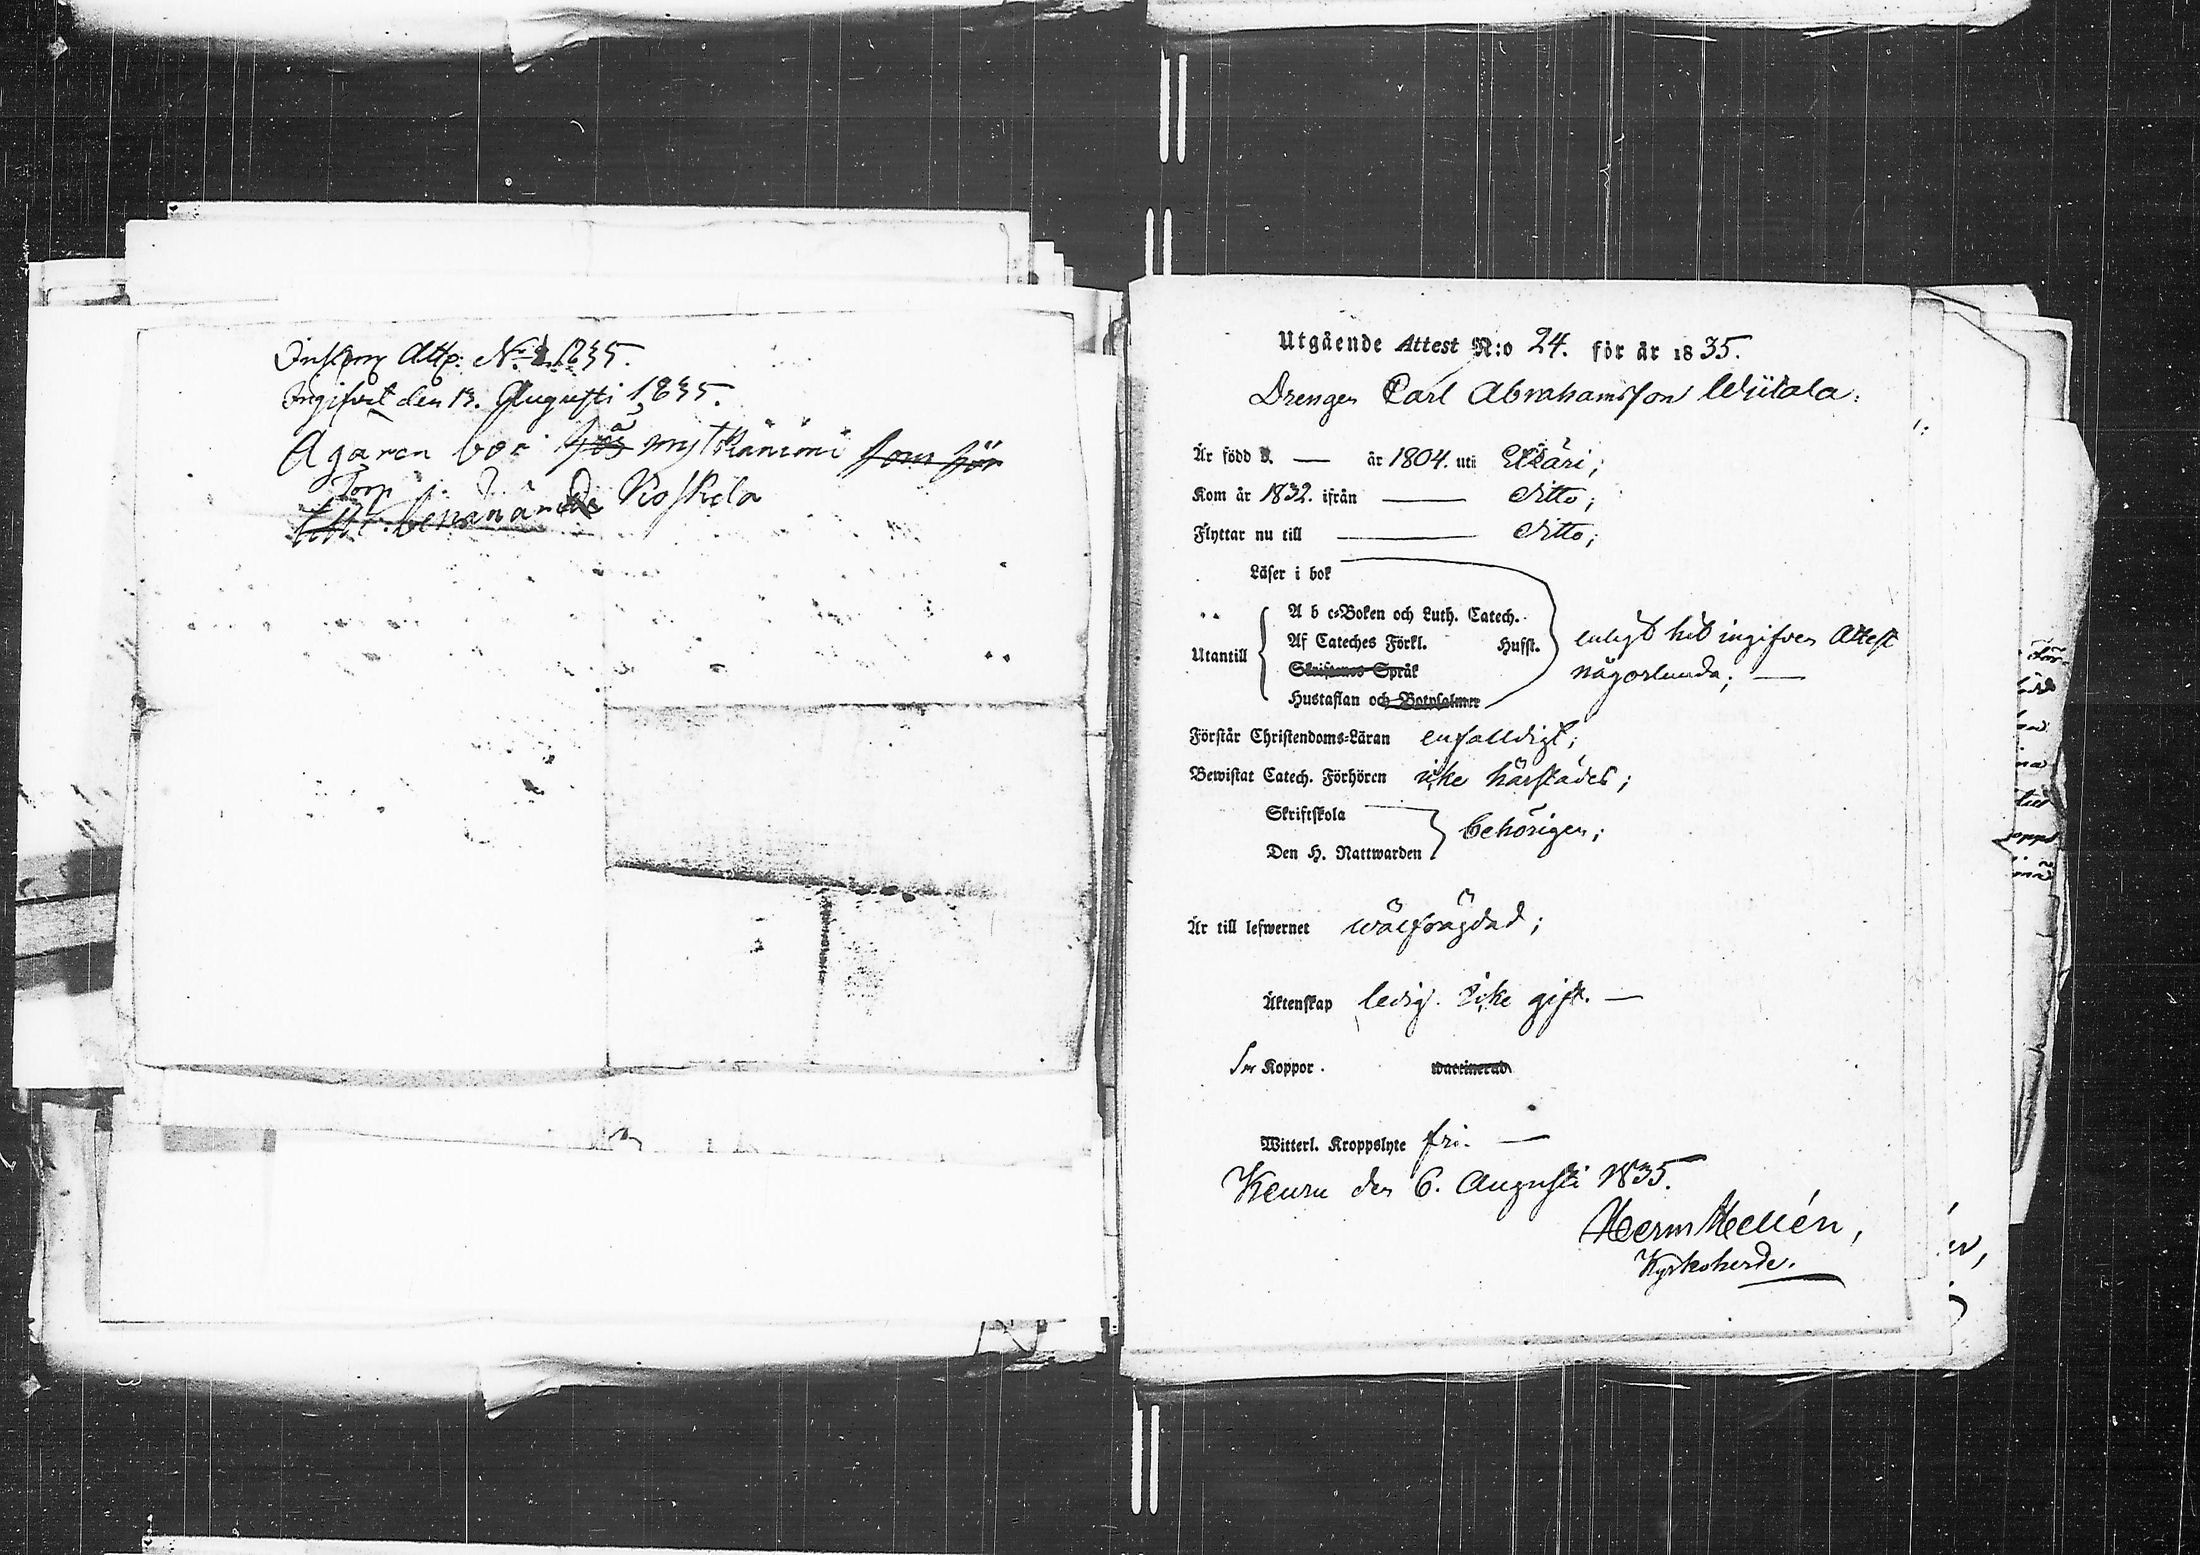 Inkom Att: N:o 1835.
Ingifvet den 13. Augusti 1835.
Ägaren bor på Mytkäniemi
Torp Koskela
Utgående Attest N:o 24. för år 1835.
Drengen Carl Abrahamsson Wiitala:
Är född d. — år 1804. uti Etzäri;
Kom år 1832. ifrån — ditto;
Flyttar nu till — ditto;
Läser i bok
A b c-Boken och Luth. Catech.
Utantill Af Cateches Förkl. Hufst. enligt hit ingifven Attest
Skriftenes Språk någorlunda; —
Hustaflan och Botpsalmer
Förstår Christendoms-Läran enfalldigt;
Bewistat Catech. Förhören icke härstädes;
Skriftskola
Den H. Nattwarden behörigen;
Är till lefwernet wälfrägdad;
Äktenskap ledig. icke gift. —
Koppor. waccinerad
Witterl. Kroppslyte fri. —
Keuru den 6. Augusti 1835.
Herm Hellén,
Kyrkoherde.